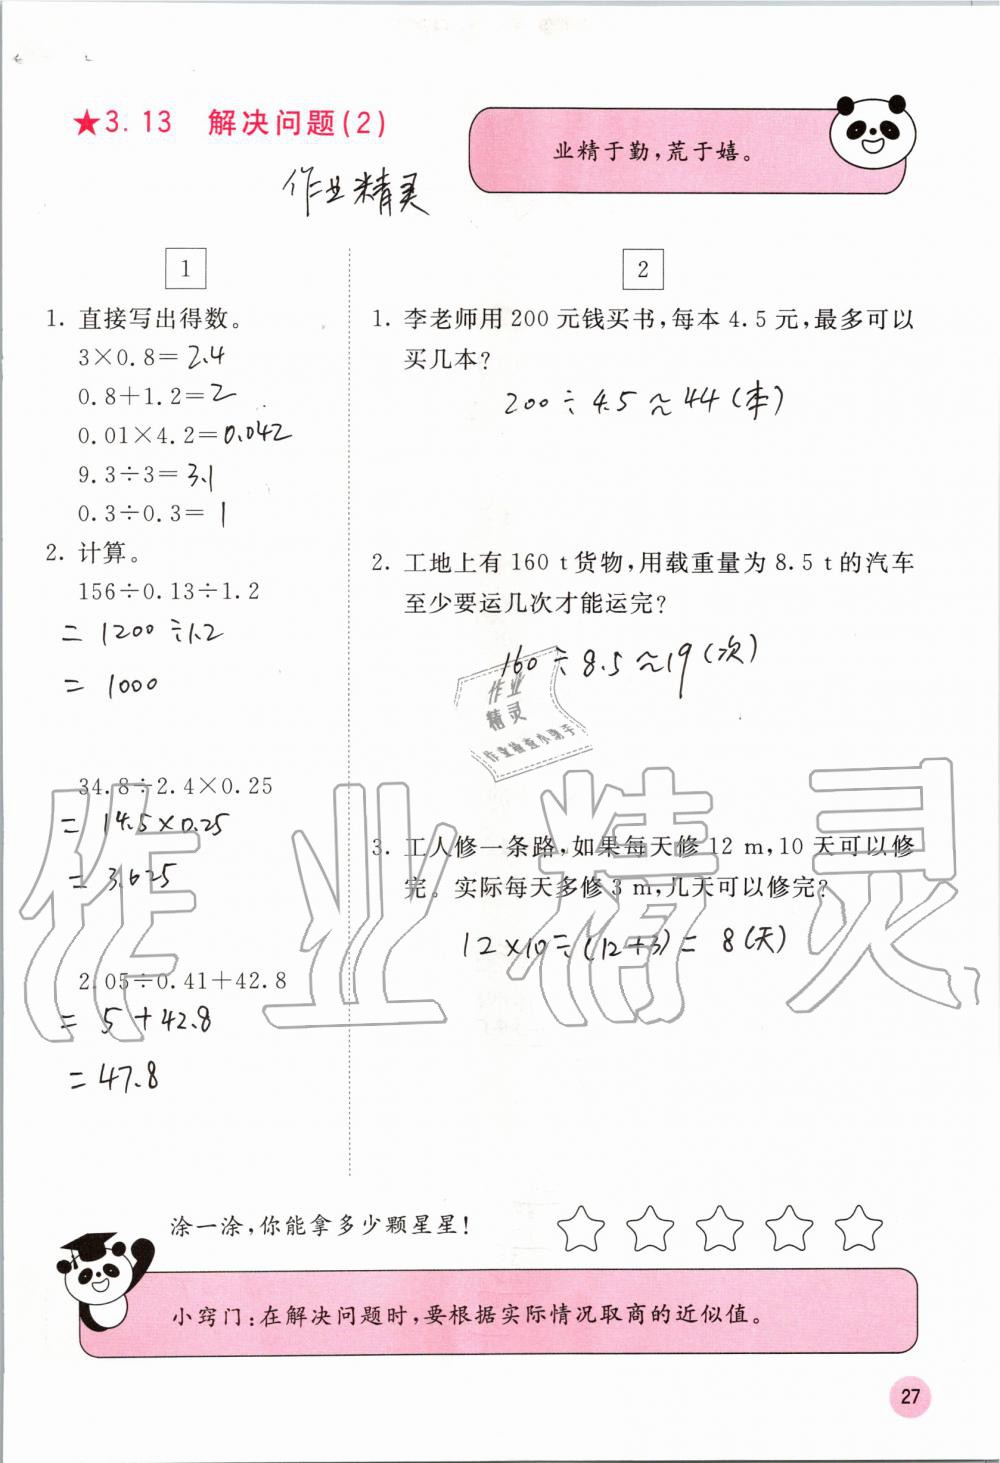 ★3.13 解决问题(2)
业精于勤,荒于嬉。
作业精灵
1
1. 直接写出得数。
3×0.8=2.4
0.8+1.2=2
0.01×4.2=0.042
9.3÷3=3.1
0.3÷0.3=1
2. 计算。
156÷0.13÷1.2
=1200÷1.2
=1000
34.8÷2.4×0.25
=14.5×0.25
=3.625
2.05÷0.41+42.8
=5+42.8
=47.8
2
1. 李老师用200元钱买书,每本4.5元,最多可以
买几本?
200÷4.5≈44(本)
2. 工地上有160 t货物,用载重量为8.5 t的汽车
至少要运几次才能运完?
160÷8.5≈19(次)
作业
精灵
作业检查小助手
3. 工人修一条路,如果每天修12 m,10天可以修
完。实际每天多修3 m,几天可以修完?
12×10÷(12+3)=8(天)
作业精灵
涂一涂,你能拿多少颗星星!
小窍门:在解决问题时,要根据实际情况取商的近似值。
27